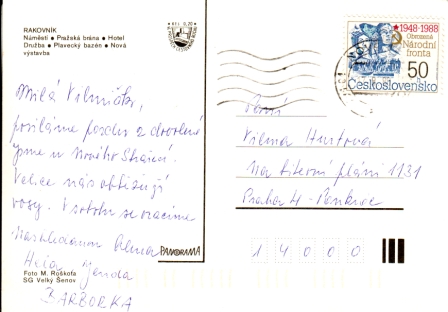 RAKOVNÍK
Náměstí • Pražská brána • Hotel
Družba • Plavecký bazén • Nová
výstavba
Kčs 0,20
Milá Vilmičko,
posíláme pozdrav z dovolené
jsme u Nového Strašecí.
Velice nás obtěžují
vosy. V sobotu se vracíme
Nashledanou
Jenda
BARBORKA
PANORAMA
Foto M. Roškofa
SG Velký Šenov
1948-1988
Obrozená
Národní
fronta
50
Československo
Paní
Vilma Hurtová
Na literní pláni 1131
Praha 4 - Pankrác
14000